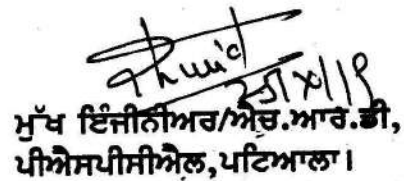 ਮੁੱਖ ਇੰਜੀਨੀਅਰ/ਐਚ.ਆਰ.ਡੀ,
ਪੀਐਸਪੀਸੀਐਲ,ਪਟਿਆਲਾ।